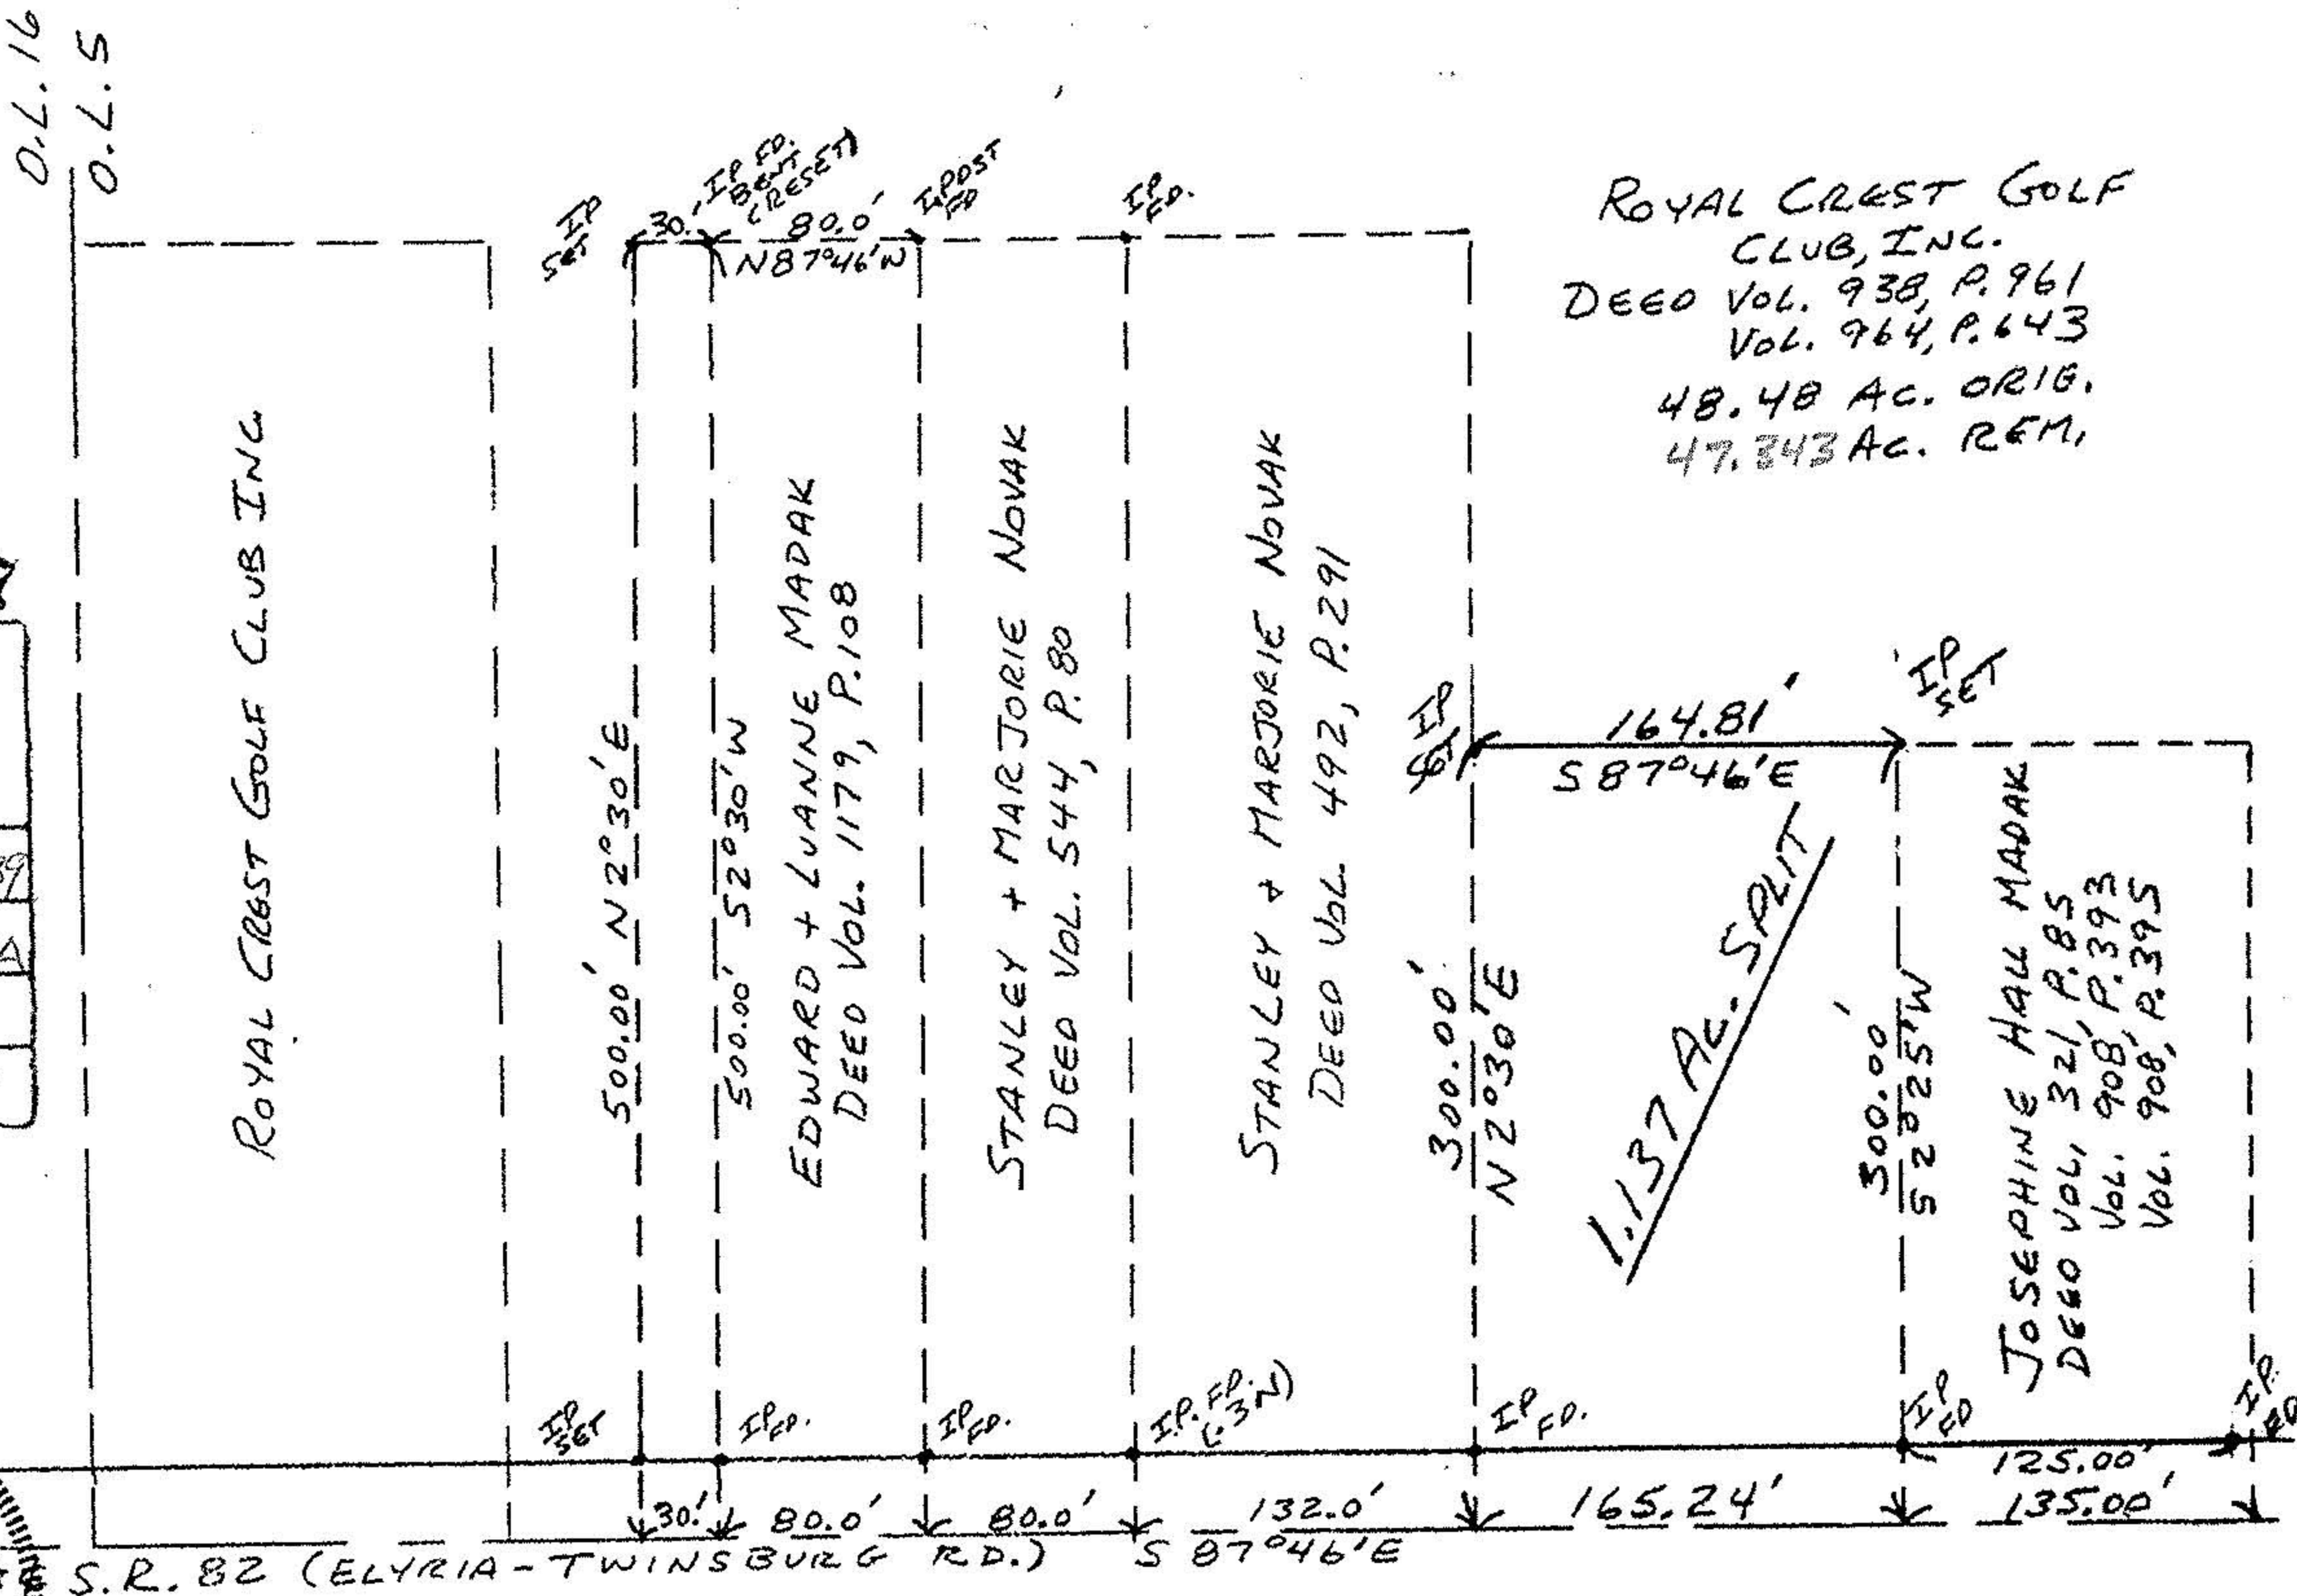 O.L. 16
O.L. 5
IP
SET
30.'
IP FD.
BENT
(RESET)
80.0'
N87°46'W
IPOST
FD
IP
FD.
ROYAL CREST GOLF
CLUB, INC.
DEED VOL. 938, P. 961
VOL. 964, P. 643
48.48 AC. ORIG.
47.343 AC. REM.
ROYAL CREST GOLF CLUB INC
500.00' N2°30'E
500.00' S2°30'W
EDWARD + LUANNE MADAK
DEED VOL. 1179, P. 108
STANLEY + MARJORIE NOVAK
DEED VOL. 544, P. 80
STANLEY + MARJORIE NOVAK
DEED VOL. 492, P. 291
IP
SET
164.81'
S87°46'E
IP
SET
300.00'
N2°30'E
1.137 AC. SPLIT
300.00'
S2°25'W
JOSEPHINE HALL MADAK
DEED VOL. 321, P. 85
VOL. 908, P. 393
VOL. 908, P. 395
IP
SET
IP
FD.
IP
FD.
I.P. FD.
(.3N)
IP
FD.
IP
FD
I.P.
FD
125.00'
30.'
80.0'
80.0'
132.0'
165.24'
135.00'
S.R. 82 (ELYRIA-TWINSBURG RD.) S 87°46'E